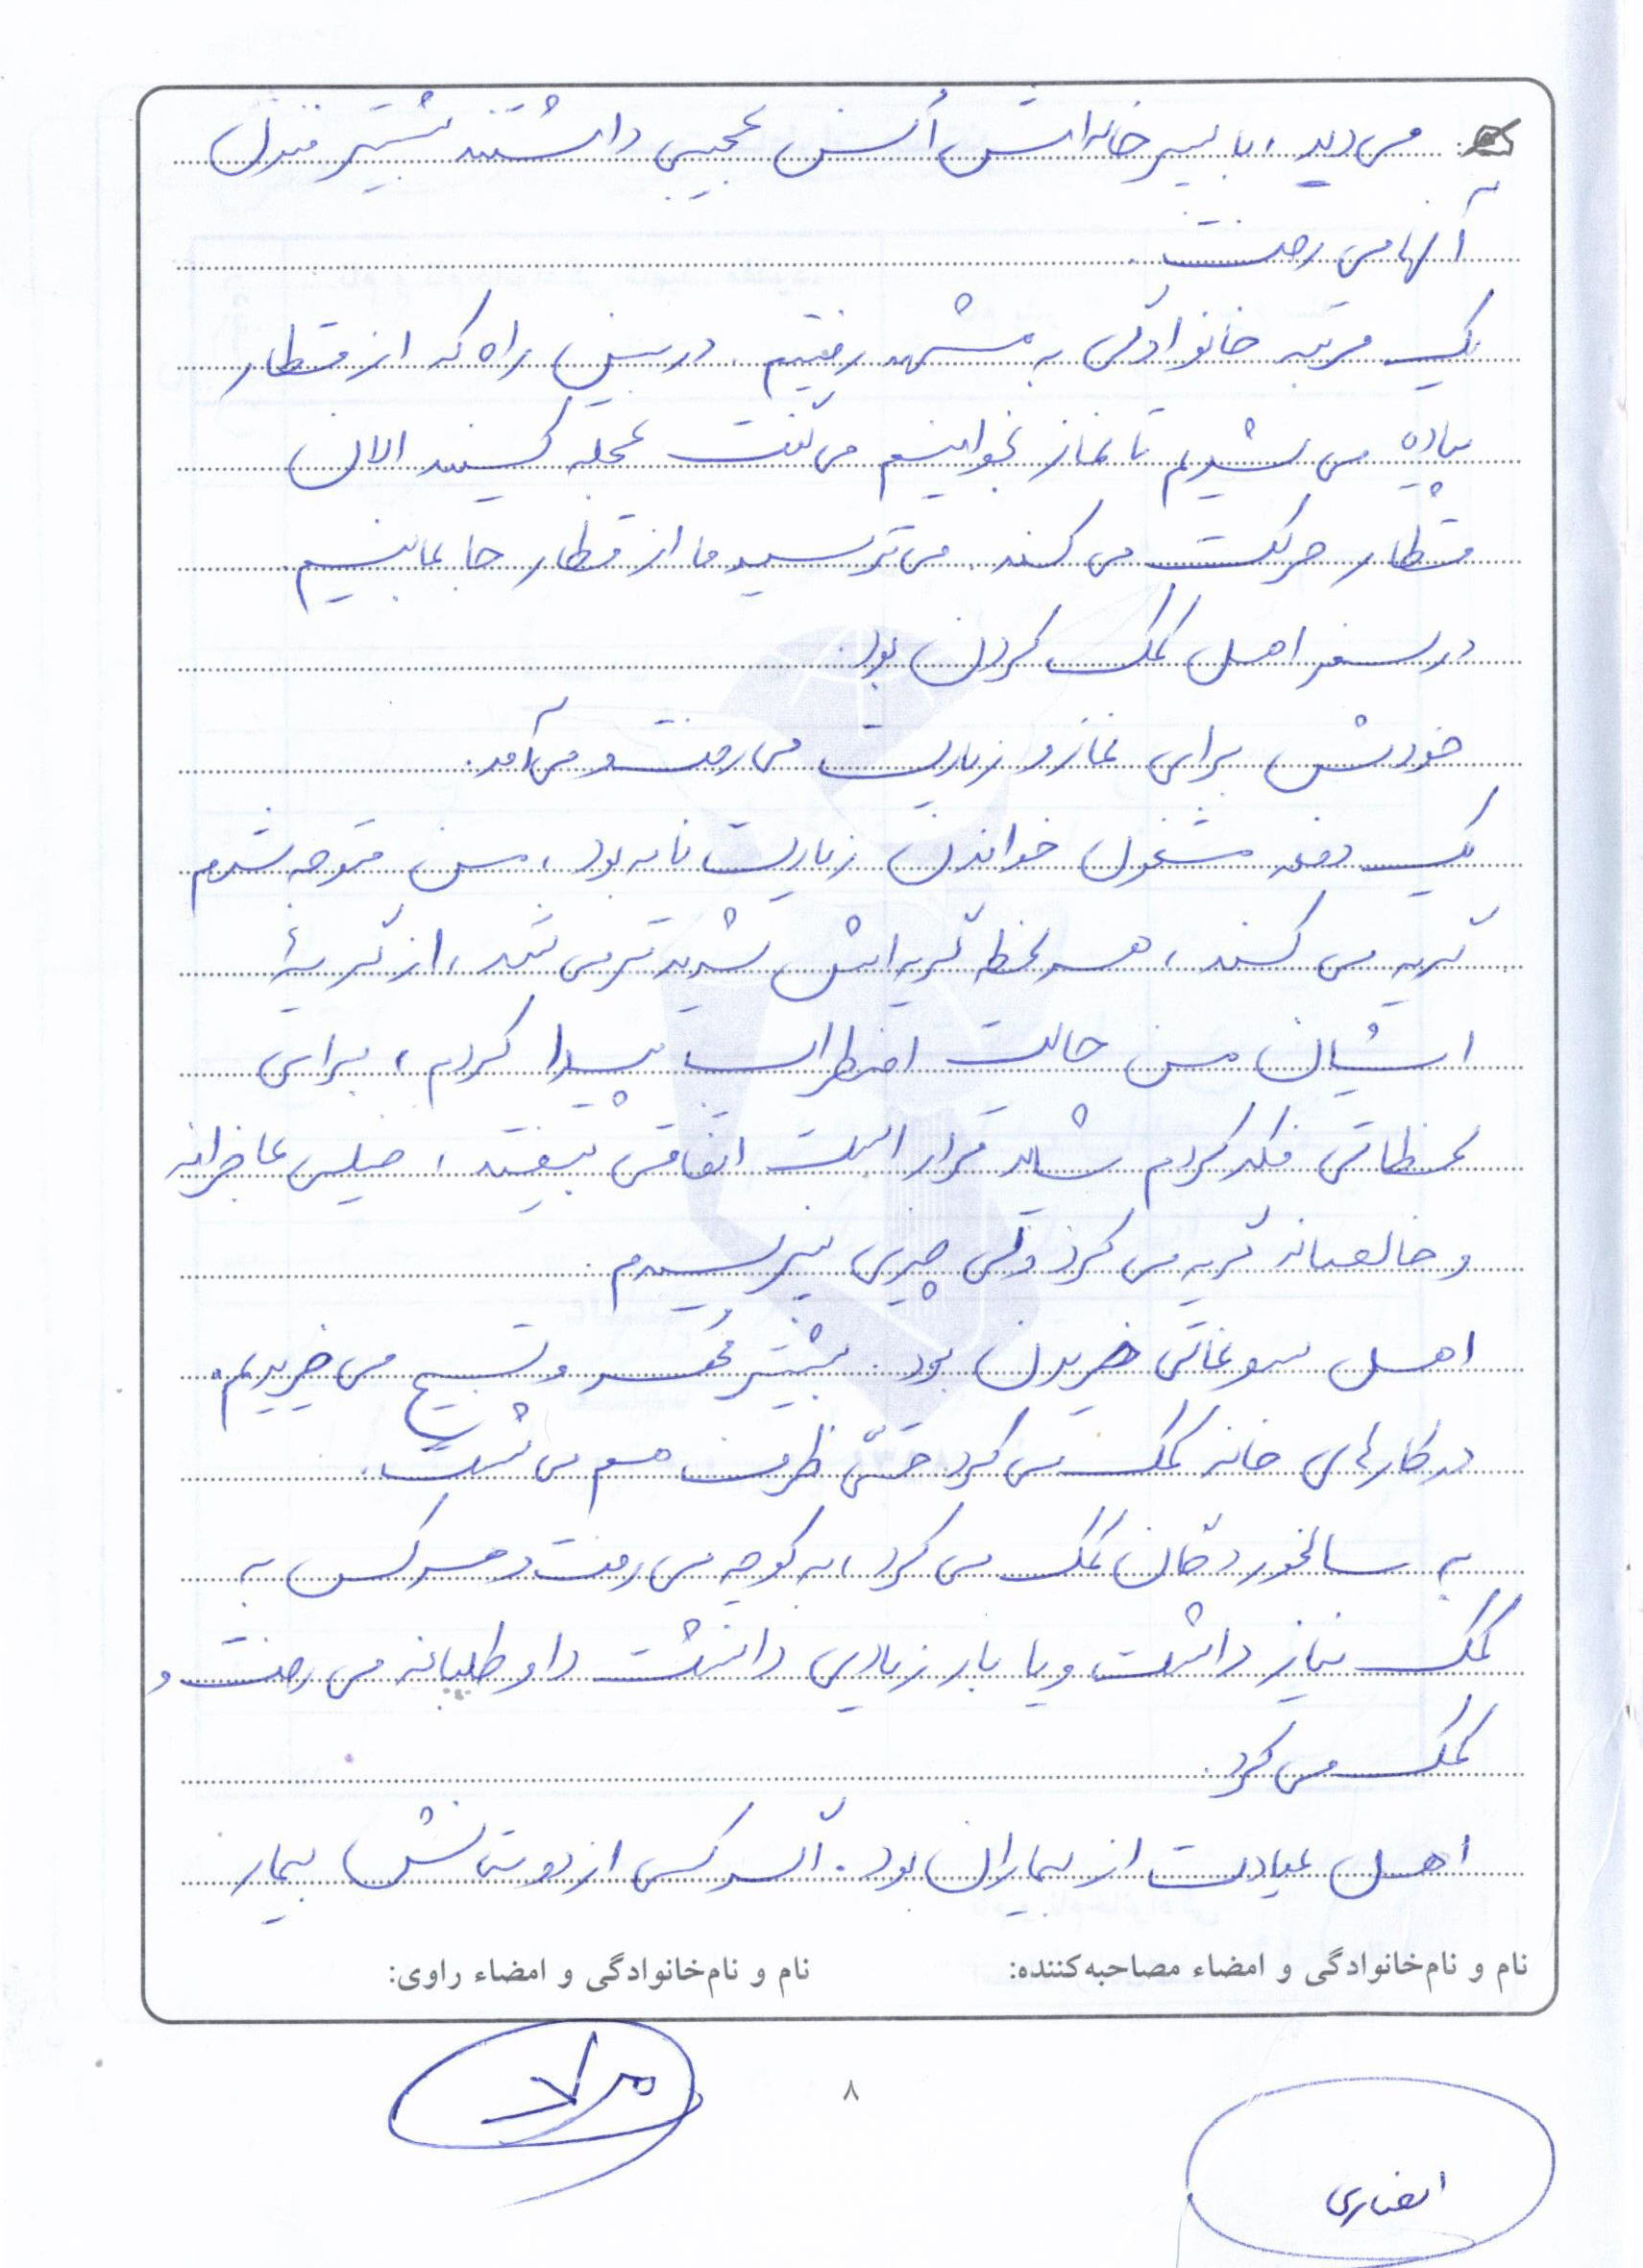 می دید، با پسر خاله‌اش اُنس عجیبی داشتند بیشتر منزل
آنها می رفت.
یک مرتبه خانوادگی به مشهد رفتیم. در بین راه که از قطار
پیاده می شدیم تا نماز بخوانیم می گفت عجله کنید الان
قطار حرکت می کند. می ترسید ما از قطار جا بمانیم.
در سفر اهل کمک کردن بود.
خودش برای نماز و زیارت می رفت و می آمد.
یک دفعه مشغول خواندن زیارت نامه بود، من متوجه شدم
گریه می کند، هر لحظه گریه اش شدیدتر می شد، از گریهٔ
ایشان من حالت اضطراب پیدا کردم، برای
لحظاتی فکر کردم شاید قرار است اتفاقی بیفتد، خیلی عاجزانه
و خالصانه گریه می کرد ولی چیزی نپرسیدم.
اهل سوغاتی خریدن بود. بیشتر مُهر و تسبیح می خریدیم.
در کارهای خانه کمک می کرد حتّی ظرف هم می شست.
به سالخوردگان کمک می کرد، به کوچه می رفت و هر کس به
کمک نیاز داشت و یا بار زیادی داشت داوطلبانه می رفت و
کمک می کرد.
اهل عیادت از بیماران بود. اگر کسی از دوستانش بیمار
نام و نام‌خانوادگی و امضاء مصاحبه‌کننده: نام و نام‌خانوادگی و امضاء راوی:
۸
انصاری